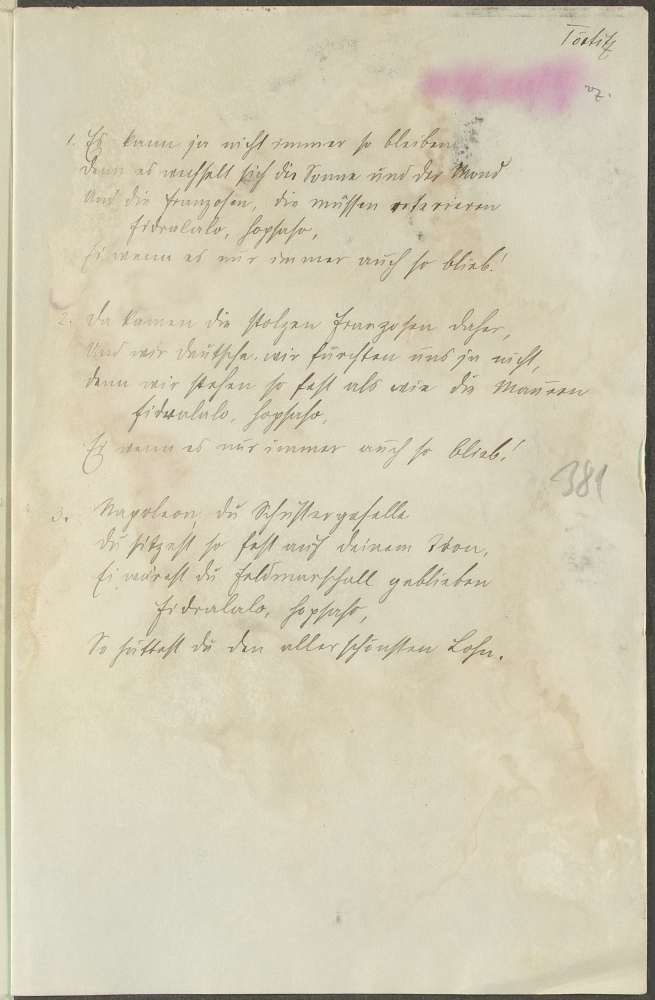 vz.
1. Es kann ja nicht immer so bleiben
Denn es wechselt sich die Sonne und der Mond
Und die Franzosen, die müssen reterieren
Fidralalo, hopsaso,
Ei wenn es nur immer auch so blieb!
2. Da kamen die stolzen Franzosen daher,
Und wir Deutsche, wir fürchten uns ja nicht,
Denn wir stehen so fest als wie die Mauren
Fidralalo, hopsaso,
Ei wenn es nur immer auch so blieb!
381
3. Napoleon, du Schustergeselle
Du sitzest so fest auf deinem Thron,
Ei wärest du Feldmarschall geblieben
Fidralalo, hopsaso,
So hättest du den allerschönsten Lohn.